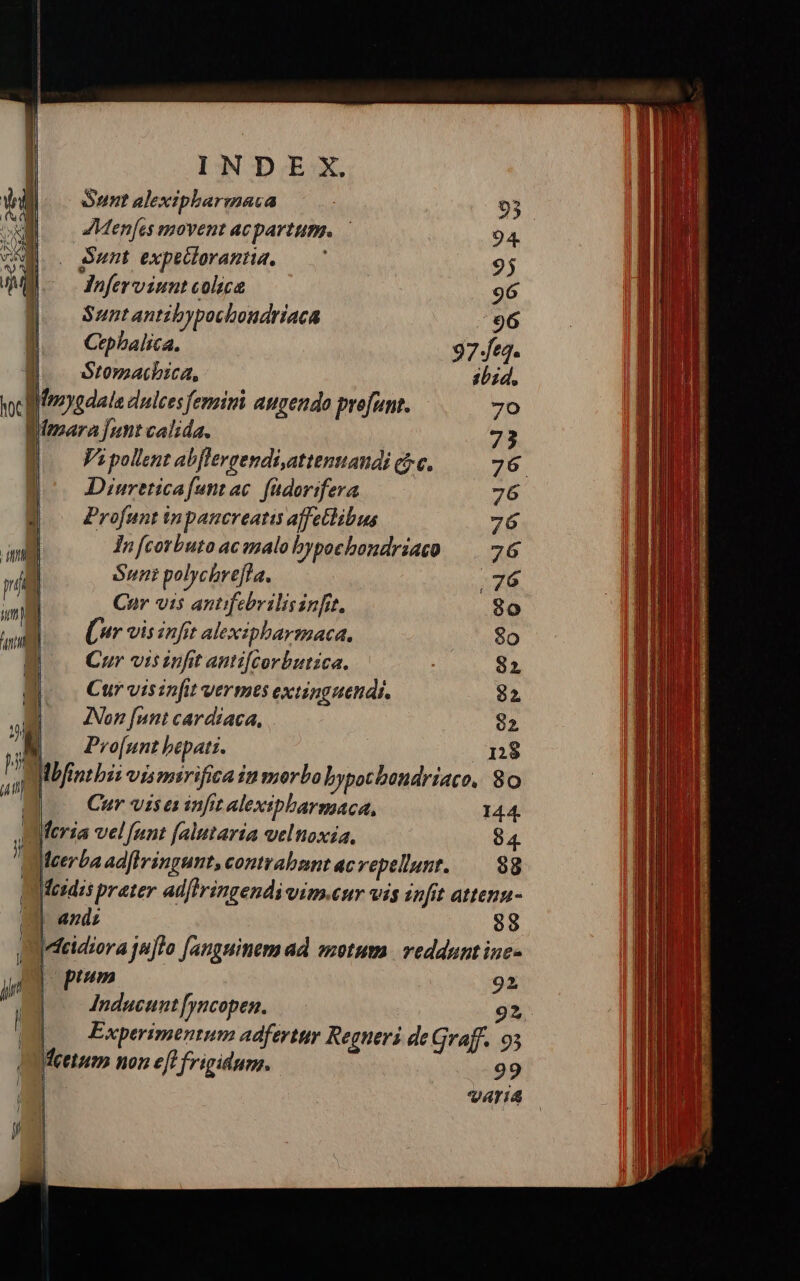 INDEX.
Sunt alexipharmaca 93
Menſes movent ac partum. 94
Sunt expectorantia. 95
Inſerviunt colicæ 96
Sunt antihypochondriaca 96
Cephalica. 97. ſeq.
Stomachica, ibid.
Amygdala dulces femini augendo proſunt. 70
Amara ſunt calida. 73
Vi pollent abſtergendi, attenuandi &c. 76
Diuretica ſunt ac ſudorifera 76
Proſunt in pancreatis affectibus 76
In ſcorbuto ac malo hypochondriaco 76
Sunt polychreſta. 76
Cur vis antifebrilis inſit. 80
Cur vis inſit alexipharmaca. 80
Cur vis inſit antiſcorbutica. 82
Cur vis inſit vermes extinguendi. 82
Non ſunt cardiaca, 82
Proſunt hepati. 128
Abſinthii vis mirifica in morbo hypochondriaco. 80
Cur vis ei inſit alexipharmaca, 144
Acria vel ſunt ſalutaria vel noxia. 84
Acerba adſtringunt, contrahunt ac repellunt. 88
Acidis præter adſtringendi vim. cur vis inſit attenu-
andi 88
Acidiora juſto ſanguinem ad motum reddunt ine-
ptum 92
Inducunt ſyncopen. 92
Experimentum adfertur Regneri de Graff. 93
Acetum non eſt frigidum. 99
varia